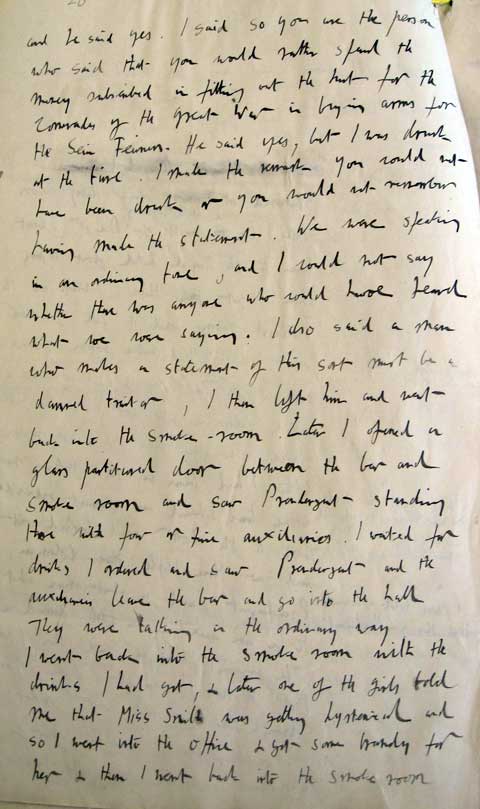 and he said yes. I said so you are the person
who said that you would rather spend the
money subscribed in fitting out the hut for the
Comrades of the great War in buying arms for
the Sein Feiners. He said yes, but I was drunk
at the time. I made the remark you could not
have been drunk or you would not remember
having made the statement. We were speaking
in an ordinary tone, and I could not say
whether there was anyone who could have heard
what we were saying. I also said a man
who makes a statement of this sort must be a
damned traitor, I then left him and went
back into the smoke-room. Later I opened a
glass partitioned door between the bar and
smoke room and saw Prendergast standing
there with four or five auxiliaries. I waited for
drinks I ordered and saw Prendergast and the
auxiliaries leave the bar and go into the hall
They were talking in the ordinary way
I went back into the smoke room with the
drinks I had got, & later one of the girls told
me that Miss Smith was getting hysterical and
so I went into the office & got some brandy for
her & then I went back into the smoke room